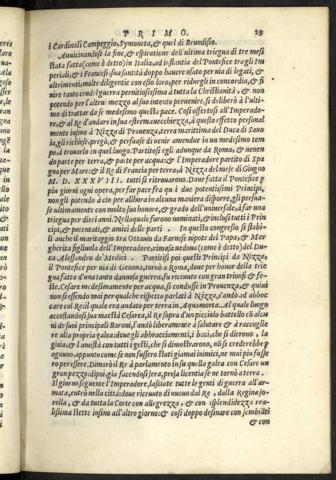 PRIMO. 29
i Cardinali Campeggio, Symoneta, & quel di Brundisio.
Auuicinandosi la fine, & espiratione dell'ultima triegua di tre mesi
stata fatta (come è detto) in Italia, ad instantia del Pontefice tra gli Im
periali, & i Francesi sua santità doppo hauere usato per uia di legati, &
altrimenti, molte diligentie con esso loro, per ridurgli in concordia, & fi
nire tanto cruda guerra perniciosissima à tutta la Christianità, & non
potendo per l'altrui mezzo al suo intento peruenire, si deliberò à l'ulti-
mo di trattar da se medesimo questa pace. Cosi offertosi all'Imperado-
re, & al Re d'andare in sua estrema uecchiezza, à questo effetto personal
mente insino à Nizza di Prouenza, terra marittima del Duca di Sauo
ia, gli richiese, pregò, & persuase di uenir amendue in un medesimo tem
po, à trouarlo in quel luogo. Partitosi egli adunque da Roma, & uenen
do parte per terra, & parte per acqua: & l'Imperadore partito di Spa
gna per Mare: & il Re di Francia per terra, à Nizza del mese di Giugno
M. D. XXXVIII. tutti si ritrouarono. Doue fatta il Pontefice
piu giorni ogni opera, per far pace fra qui i due potentissimi Principi,
non gli potendo à ciò per allhora in alcuna maniera disporre, gli persua
se ultimamente con molto suo honore, & grado dell'uniuersale, à far una
triegua per dieci anni. Nella quale furono nominati, & inclusi tutti i Prin
cipi, & potentati, & amici delle parti. In questo congresso si stabi-
lì anche il maritaggio tra Ottauio da Farnese nipote del Papa, & Mar-
gherita figliuola dell'Imperadore, rimasa uedoua (come è detto) del Du
ca Alessandro de Medici. Partitisi poi questi Principi da Nizza,
il Pontefice per uia di Genoua, tornò a Roma, doue per honor della trie
gua fatta d'una tanto dannosa guerra, fu riceuuto con gran trionfo & fe-
ste, Cesare medesimamente per acqua, si condusse in Prouenza, & quiui
non essendosi mai per qualche rispetto parlati à Nizza, s'andò ad abboc
care col Re, il quale era andato per terra in Aquamorta. Al quale luogo
accostandosi sua maestà Cesarea, il Re sopra d'un picciolo battello cõ alcu
ni de suoi principali Baroni, l'andò liberamente à salutare & à raccoglie
re alla propria galea: doue gli abbracciamenti, i baci, che si dierono, la
gioia, & l'amistà con tutti i gesti, che si dimostrarono, nõ si crederebbe
ognuno, appunto come se non fussero stati giamai inimici, ne mai piu fusse
ro per essere. Dimorò il Re à parlamento in su quella galea con Cesare un
gran pezzo: dipoi, già facendosi sera, presa licentia se ne tornò à terra.
Il giorno seguente l'Imperadore, lasciate tutte le genti di guerra all'ar-
mata, entrò nella città: doue riceuuto di nuouo dal Re, dalla Regina so-
rella, & da tutta la Corte con allegrezza, & con splendidezza rea-
lissima stette insino all'altro giorno: & cosi doppo desinare con sembiãti
& con